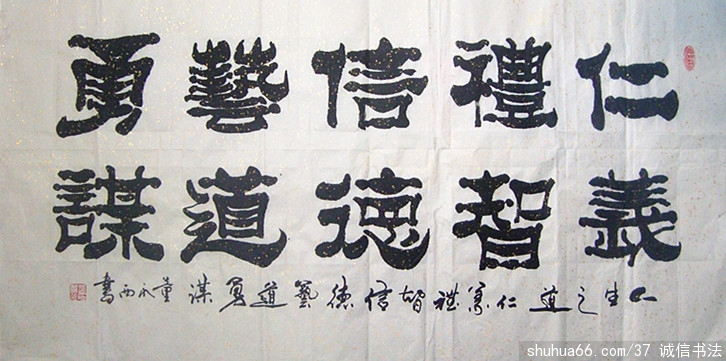 仁義
禮智
信德
藝道
勇謀
人生之道 仁義礼智信德藝道勇谋 董西書
shuhua66.com/37 诚信书法